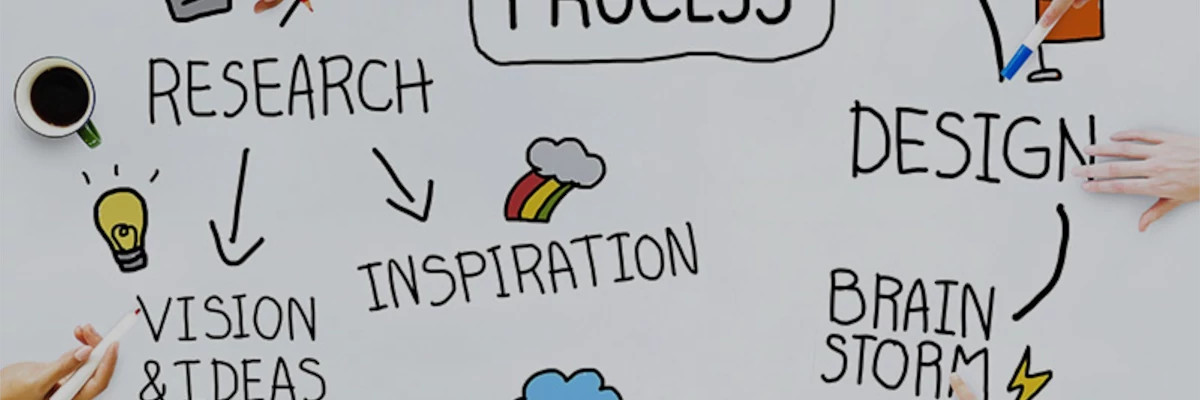 PROCESS
RESEARCH
DESIGN
INSPIRATION
VISION
& IDEAS
BRAIN
STORM